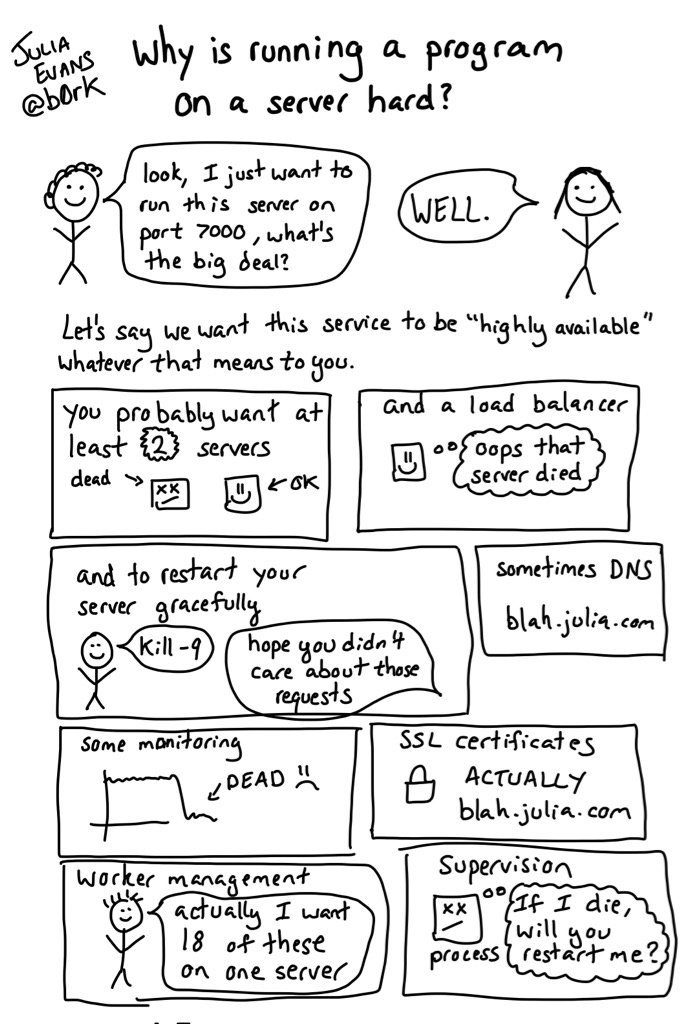 JULIA
EVANS
@b0rk
Why is running a program
on a server hard?
look, I just want to
run this server on
port 7000, what's
the big deal?
WELL.
Let's say we want this service to be "highly available"
whatever that means to you.
you probably want at
least 2 servers
dead
OK
and a load balancer
oops that
server died
and to restart your
server gracefully
kill -9
hope you didn't
care about those
requests
sometimes DNS
blah.julia.com
some monitoring
DEAD
SSL certificates
ACTUALLY
blah.julia.com
worker management
actually I want
18 of these
on one server
Supervision
process
If I die,
will you
restart me?